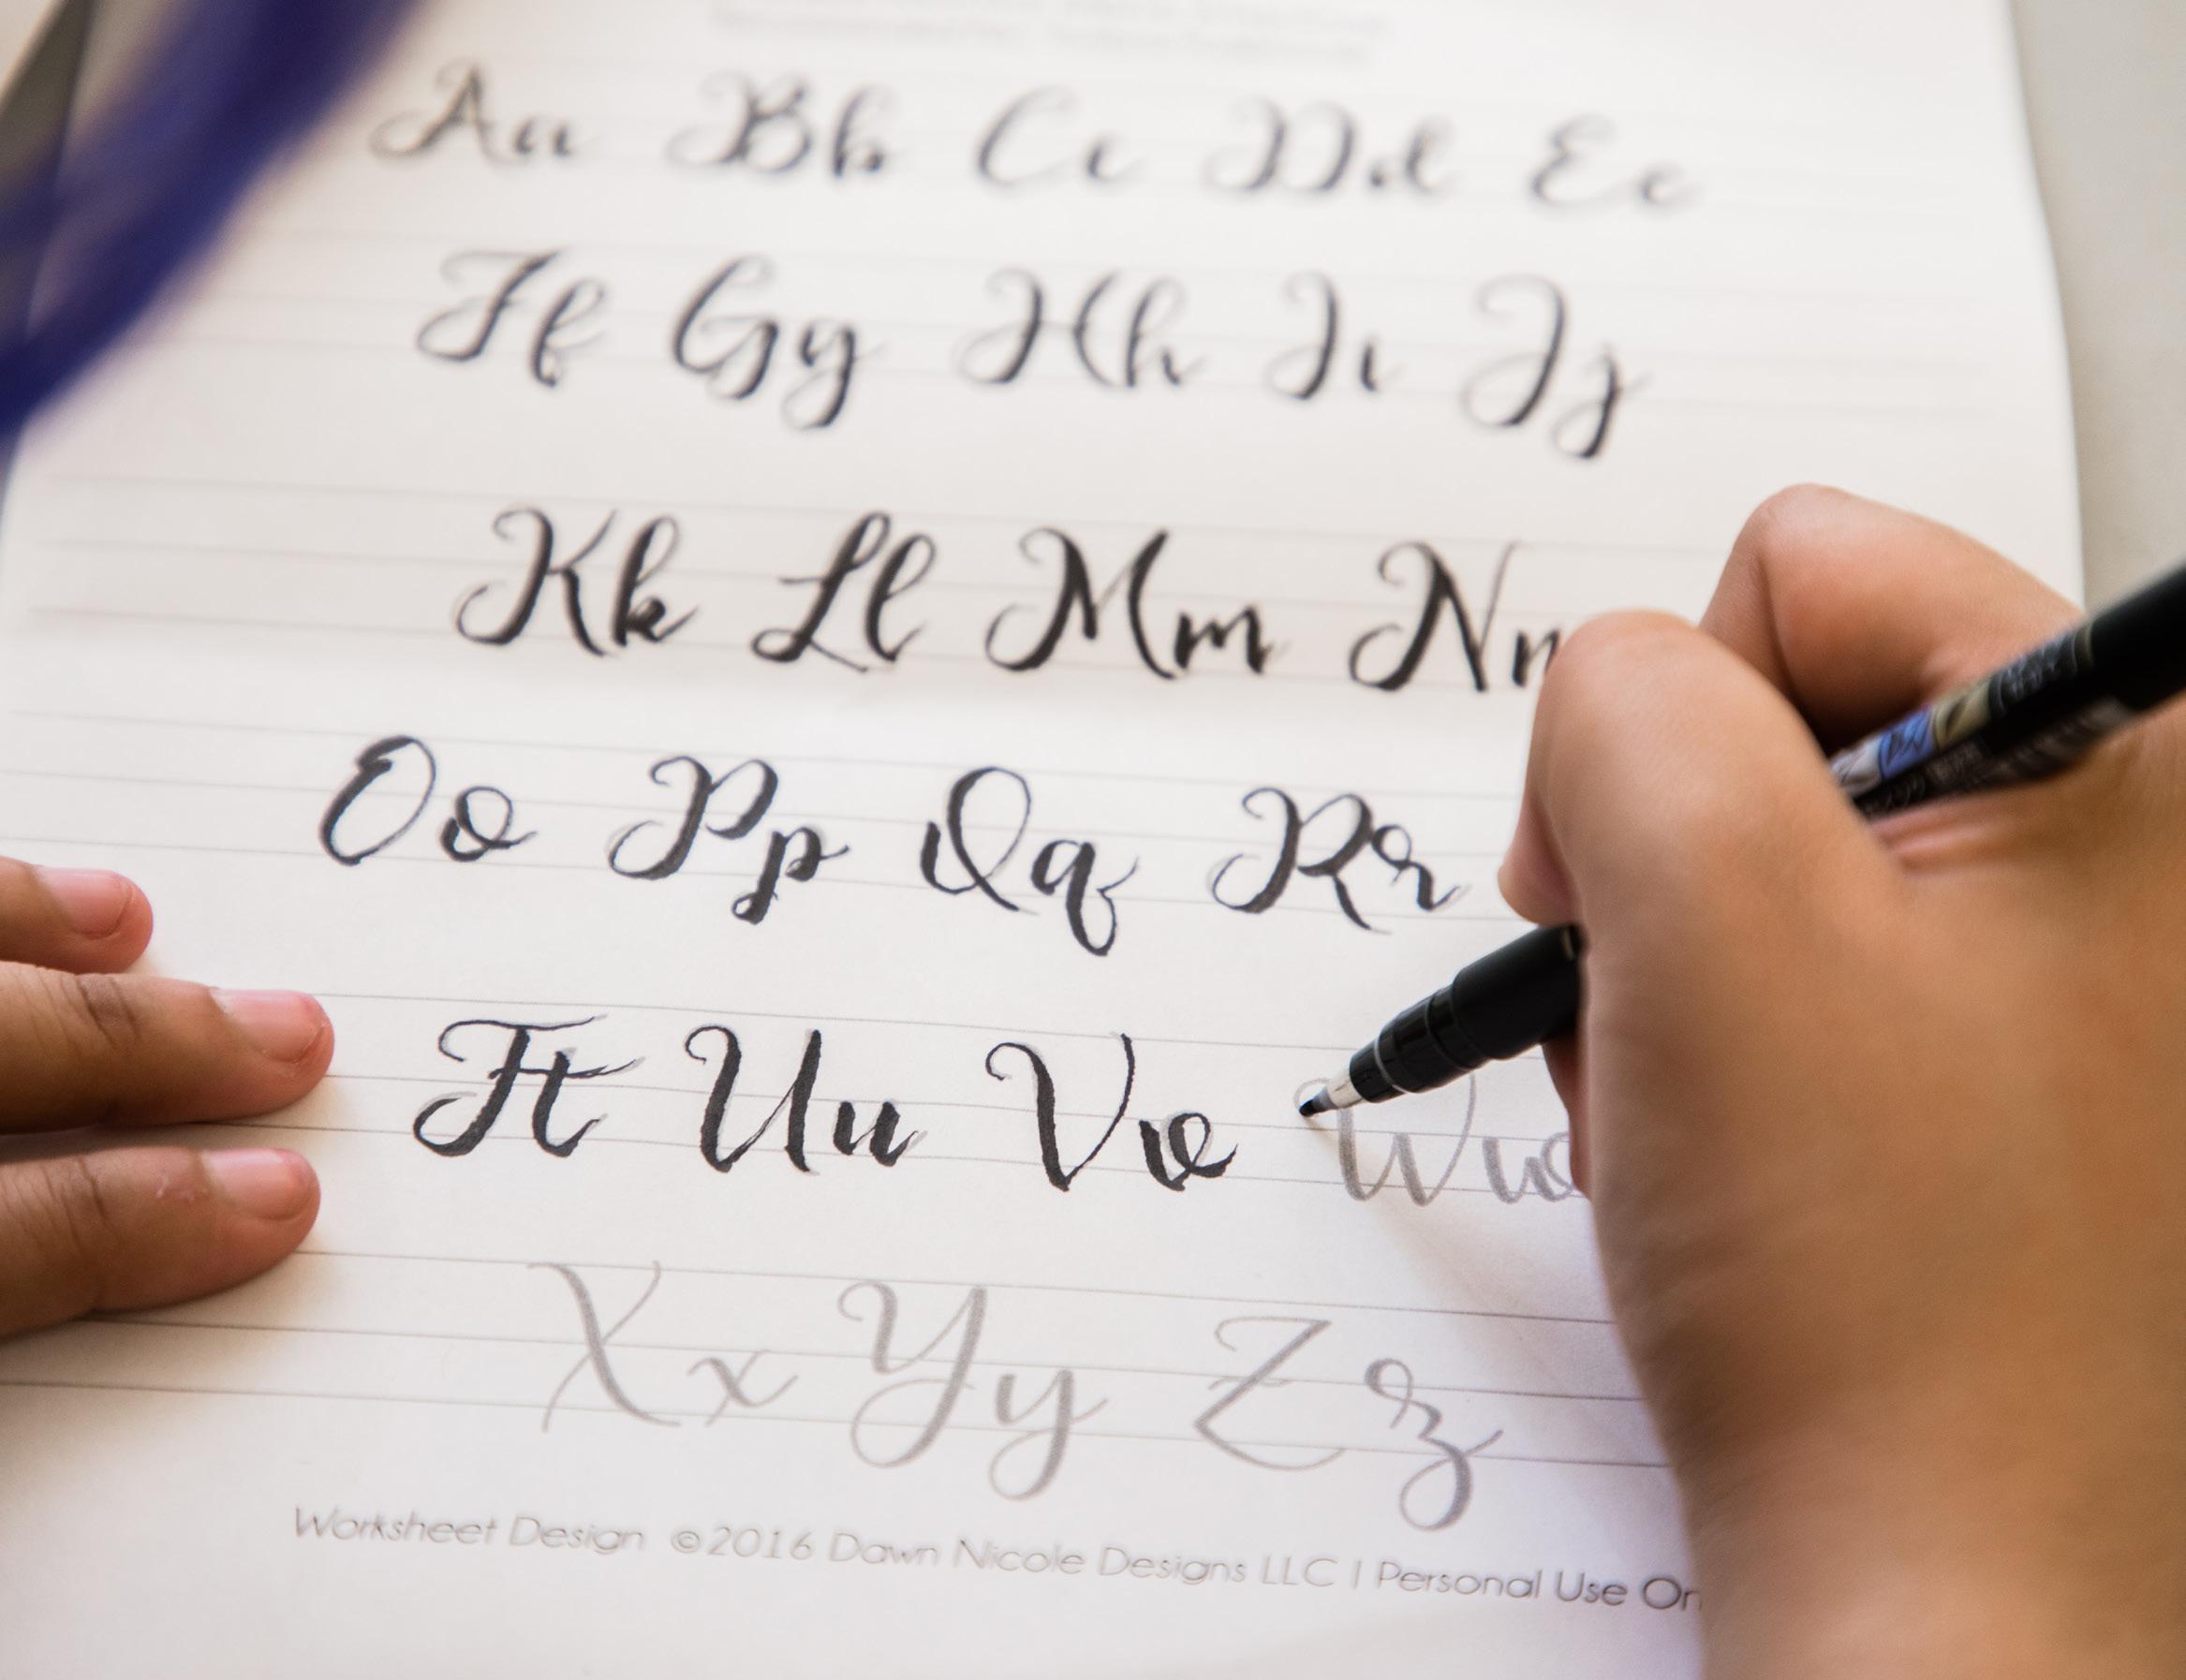 Aa Bb Cc Dd Ee
Ff Gg Hh Ii Jj
Kk Ll Mm Nn
Oo Pp Qq Rr
Tt Uu Vv Ww
Xx Yy Zz
Worksheet Design ©2016 Dawn Nicole Designs LLC | Personal Use On